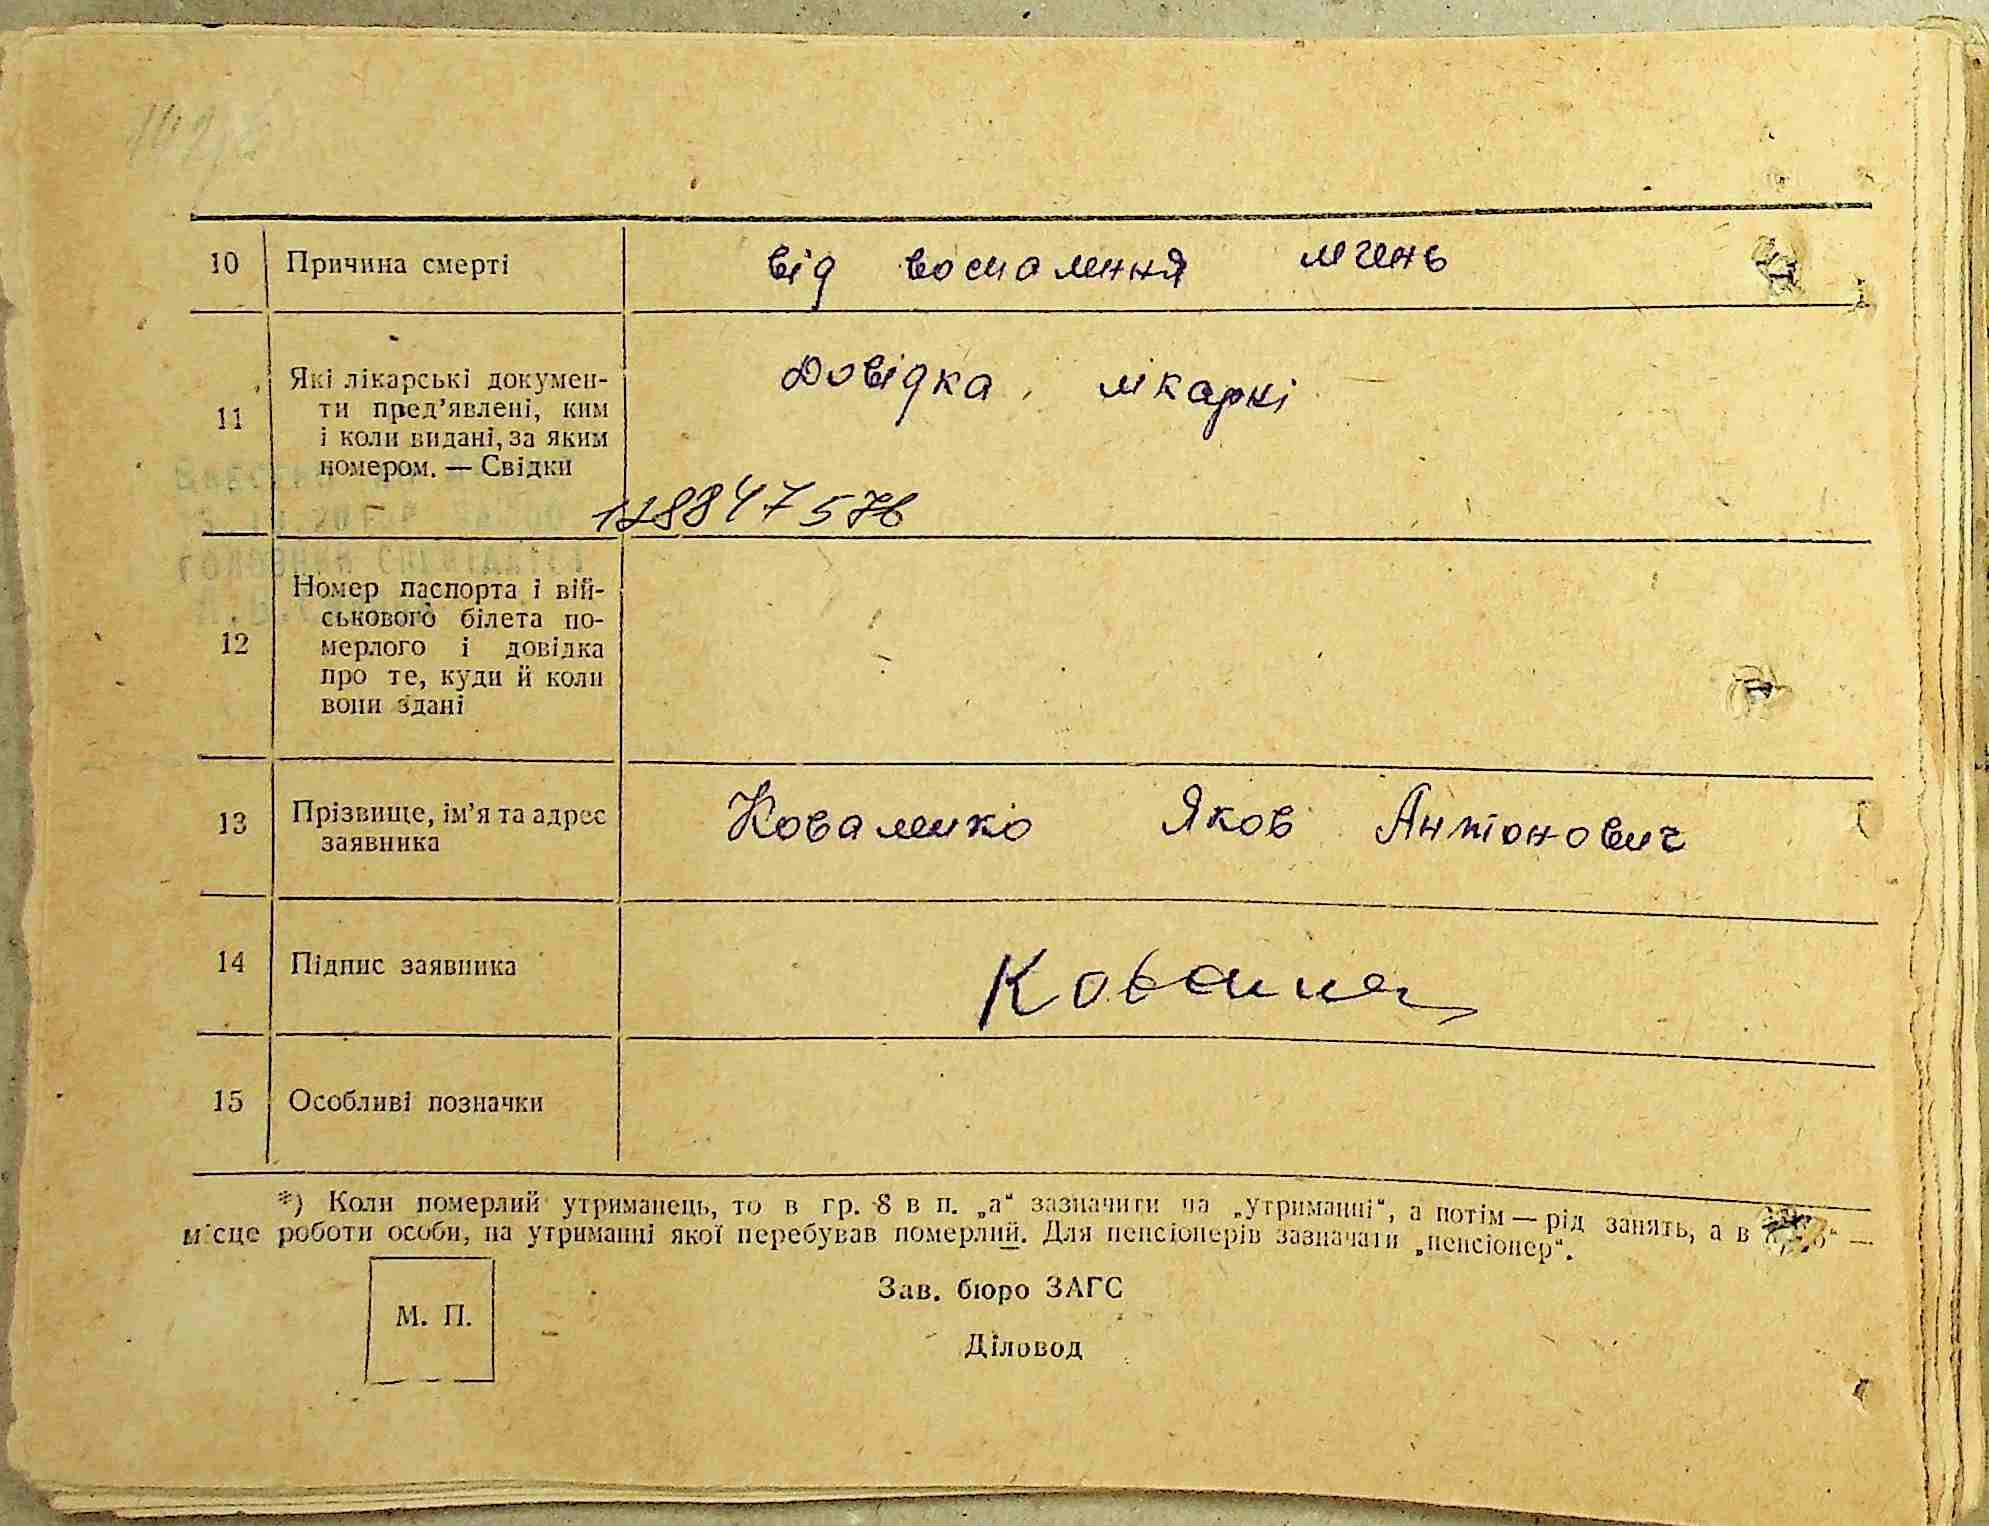 10 Причина смерті від воспалення легень
11 Які лікарські докумен-
ти пред’явлені, ким
і коли видані, за яким
номером. — Свідки
Довідка лікаркі
12 Номер паспорта і вій-
ськового білета по-
мерлого і довідка
про те, куди й коли
вони здані
13 Прізвище, ім’я та адрес
заявника
Коваленко Яков Антонович
14 Підпис заявника
15 Особливі позначки
*) Коли померлий утриманець, то в гр. 8 в п. „а“ зазначити на „утриманні“, а потім — рід занять, а в —
місце роботи особи, на утриманні якої перебував померлий. Для пенсіонерів зазначати „пенсіонер“.
М. П.
Зав. бюро ЗАГС
Діловод